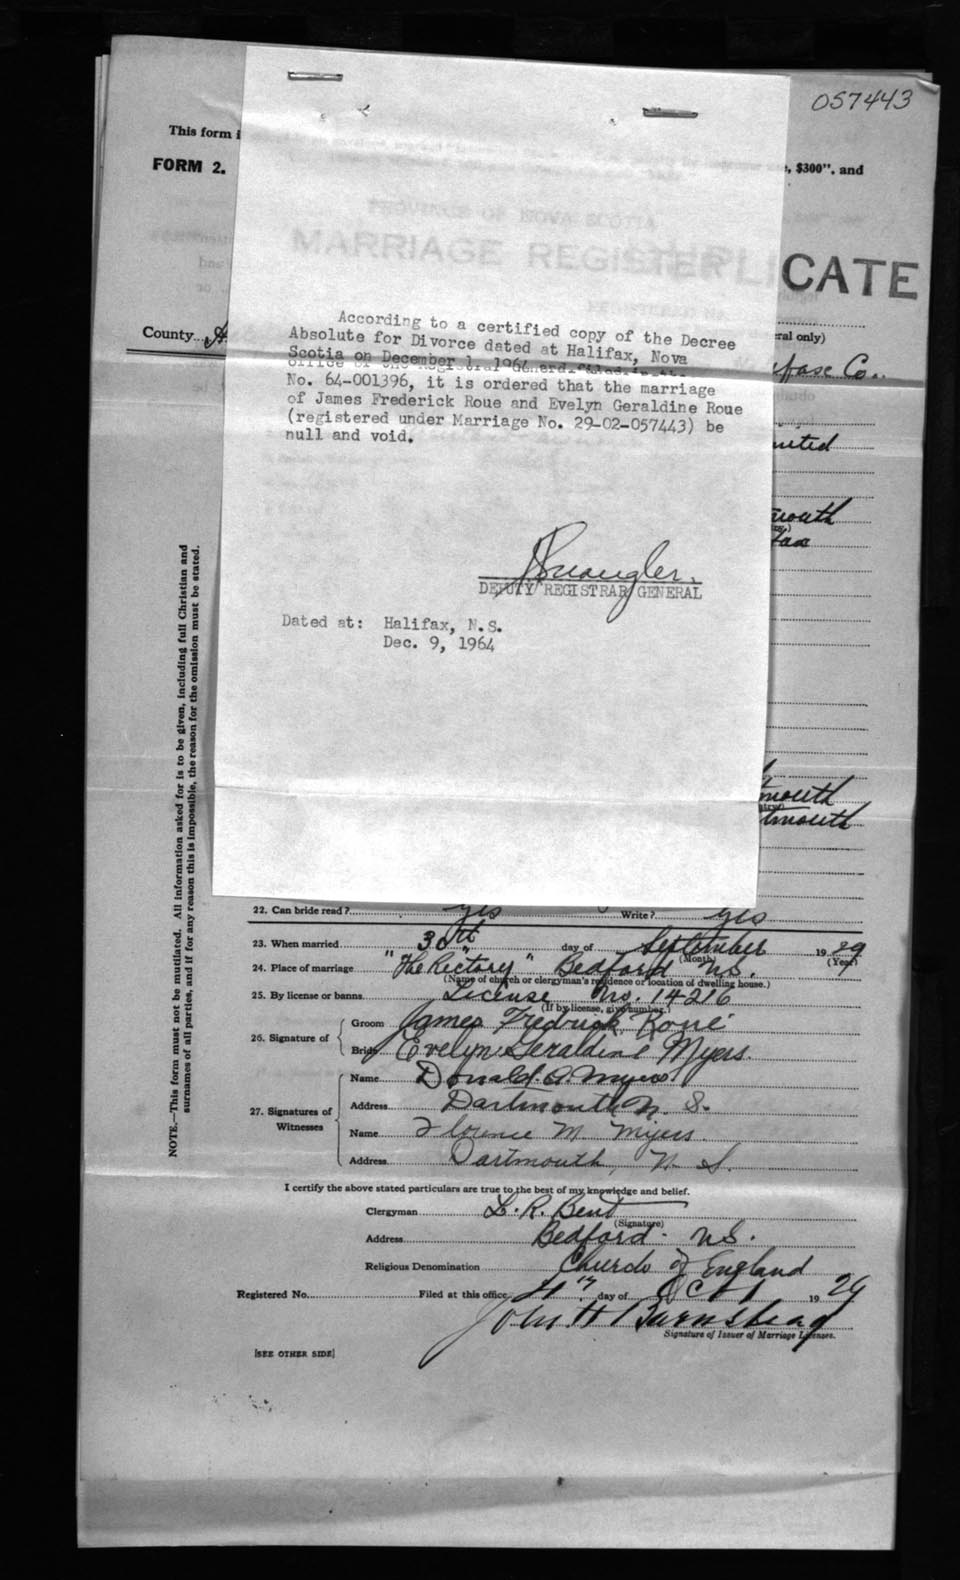 057443
This form i
FORM 2.
, $300". and
PROVINCE OF NOVA SCOTIA
MARRIAGE REGISTER
CATE
County
ral only)
According to a certified copy of the Decree
Absolute for Divorce dated at Halifax, Nova
Scotia on December 1, 1964
No. 64-001396, it is ordered that the marriage
of James Frederick Roue and Evelyn Geraldine Roue
(registered under Marriage No. 29-02-057443) be
null and void.
Co.
mouth
fax
DEPUTY REGISTRAR GENERAL
Dated at: Halifax, N.S.
Dec. 9, 1964
mouth
tmouth
NOTE.—This form must not be mutilated. All information asked for is to be given, including full Christian and
surnames of all parties, and if for any reason this is impossible, the reason for the omission must be stated.
22. Can bride read? yes Write? yes
23. When married 30th day of September 1929
(Month) (Year)
24. Place of marriage "The Rectory" Bedford N.S.
(Name of church or clergyman's residence or location of dwelling house.)
25. By license or banns. License No. 14216
(If by license, give number.)
26. Signature of Groom James Fredrick Roué
Bride Evelyn Geraldine Myers.
27. Signatures of Witnesses Name Donald. A. Myers
Address Dartmouth N. S.
Name Florence M Myers.
Address Dartmouth, N. S.
I certify the above stated particulars are true to the best of my knowledge and belief.
Clergyman L. R. Bent
(Signature)
Address Bedford. N.S.
Religious Denomination Church of England
Registered No. Filed at this office 4th day of Oct 1929
John H Barnstead
Signature of Issuer of Marriage Licenses.
[SEE OTHER SIDE]